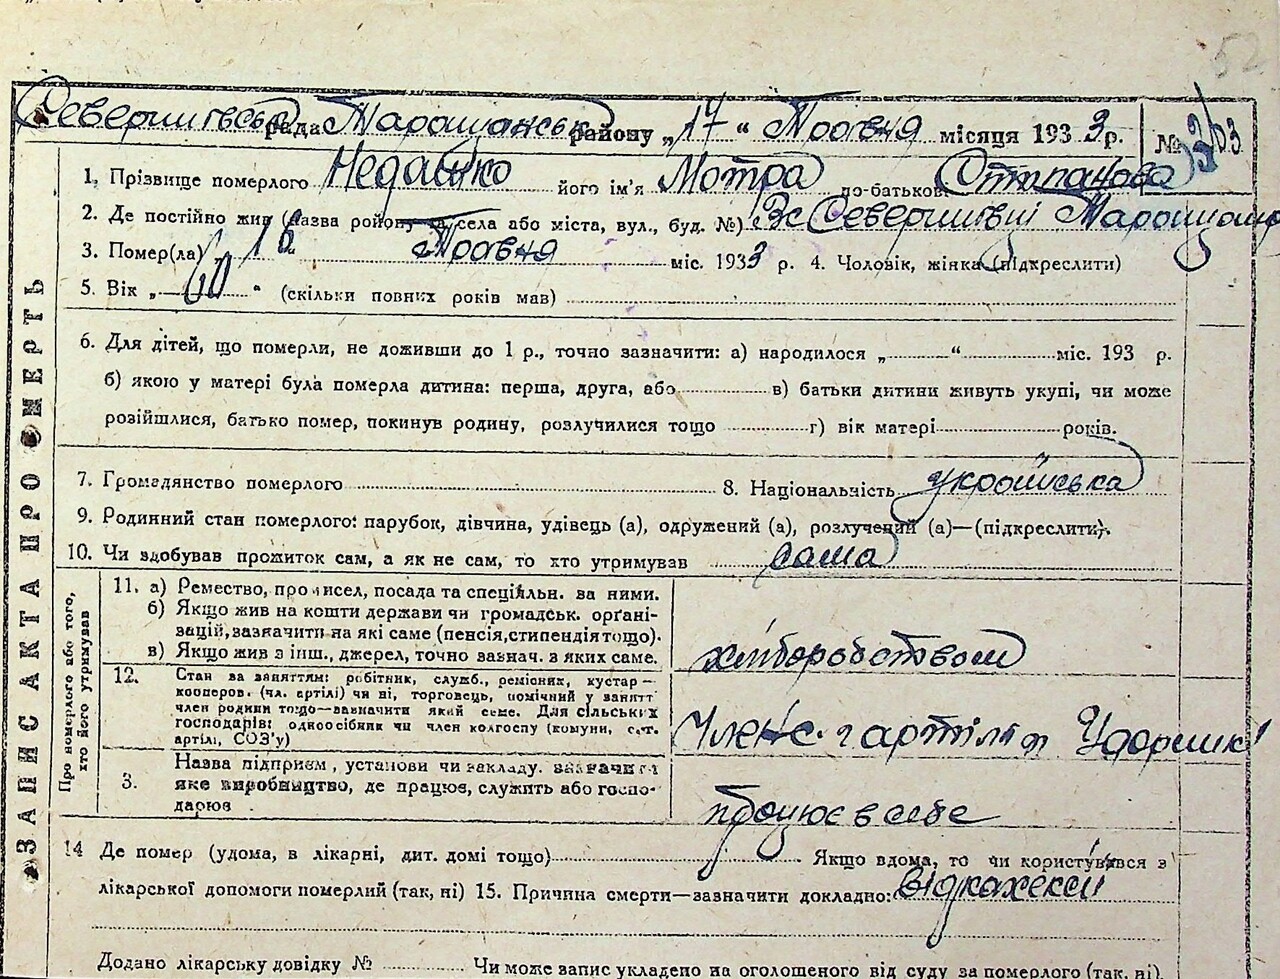 52
Северинівська рада Таращанськ району „17“ Травня місяця 1933 р. №
1. Прізвище померлого Недашко його ім'я Мотра по-батькові Степанова
2. Де постійно жив (назва району та села або міста, вул., буд. №) Зс Северинівці Таращанс
3. Помер(ла) „16“ Травня міс. 1933 р. 4. Чоловік, жінка (підкреслити)
5. Вік „60“ (скільки повних років мав)
6. Для дітей, що померли, не доживши до 1 р., точно зазначити: а) народилося „ “ міс. 193 р.
б) якою у матері була померла дитина: перша, друга, або в) батьки дитини живуть укупі, чи може
розійшлися, батько помер, покинув родину, розлучилися тощо г) вік матері років.
7. Громадянство померлого 8. Національність українська
9. Родинний стан померлого: парубок, дівчина, удівець (а), одружений (а), розлучений (а)—(підкреслити).
10. Чи здобував прожиток сам, а як не сам, то хто утримував сама
ЗАПИС АКТА ПРО СМЕРТЬ
Про померлого або того,
хто його утримував
11. а) Ремество, промисел, посада та спеціяльн. за ними.
б) Якщо жив на кошти держави чи громадськ. орґані-
зацій, зазначити на які саме (пенсія, стипендія тощо).
в) Якщо жив з інш., джерел, точно зазнач. з яких саме.
хліборобством
12. Стан за заняттям: робітник, служб., ремісник, кустар—
кооперов. (чл. артілі) чи ні, торговець, помічний у занятт
член родини тощо—зазначити який саме. Для сільських
господарів: одноосібник чи член колгоспу (комуни, с.-г.
артілі, СОЗ'у)
Член с. г артілі
3. Назва підприєм, установи чи закладу. зазначити
яке виробництво, де працює, служить або госпо-
дарює
працює в себе
14 Де помер (удома, в лікарні, дит. домі тощо) Якщо вдома, то чи користувався з
лікарської допомоги померлий (так, ні) 15. Причина смерти—зазначити докладно: від кахексії
Додано лікарську довідку № Чи може запис укладено на оголошеного від суду за померлого (так, ні).